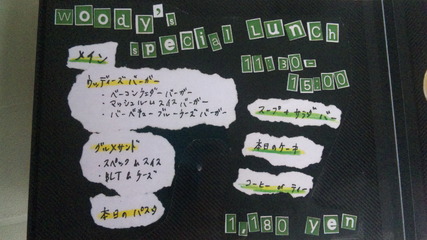 woody's
special Lunch
11:30-
15:00
メイン
ウッディーズ バーガー
・ベーコンチェダーバーガー
・マッシュルームスイスバーガー
・バーベキューブルーチーズバーガー
グルメサンド
・スペックムスイス
・BLTムケーズ
本日のパスタ
スープ+サラダバー
本日のケーキ
コーヒー or ティー
1,180 yen